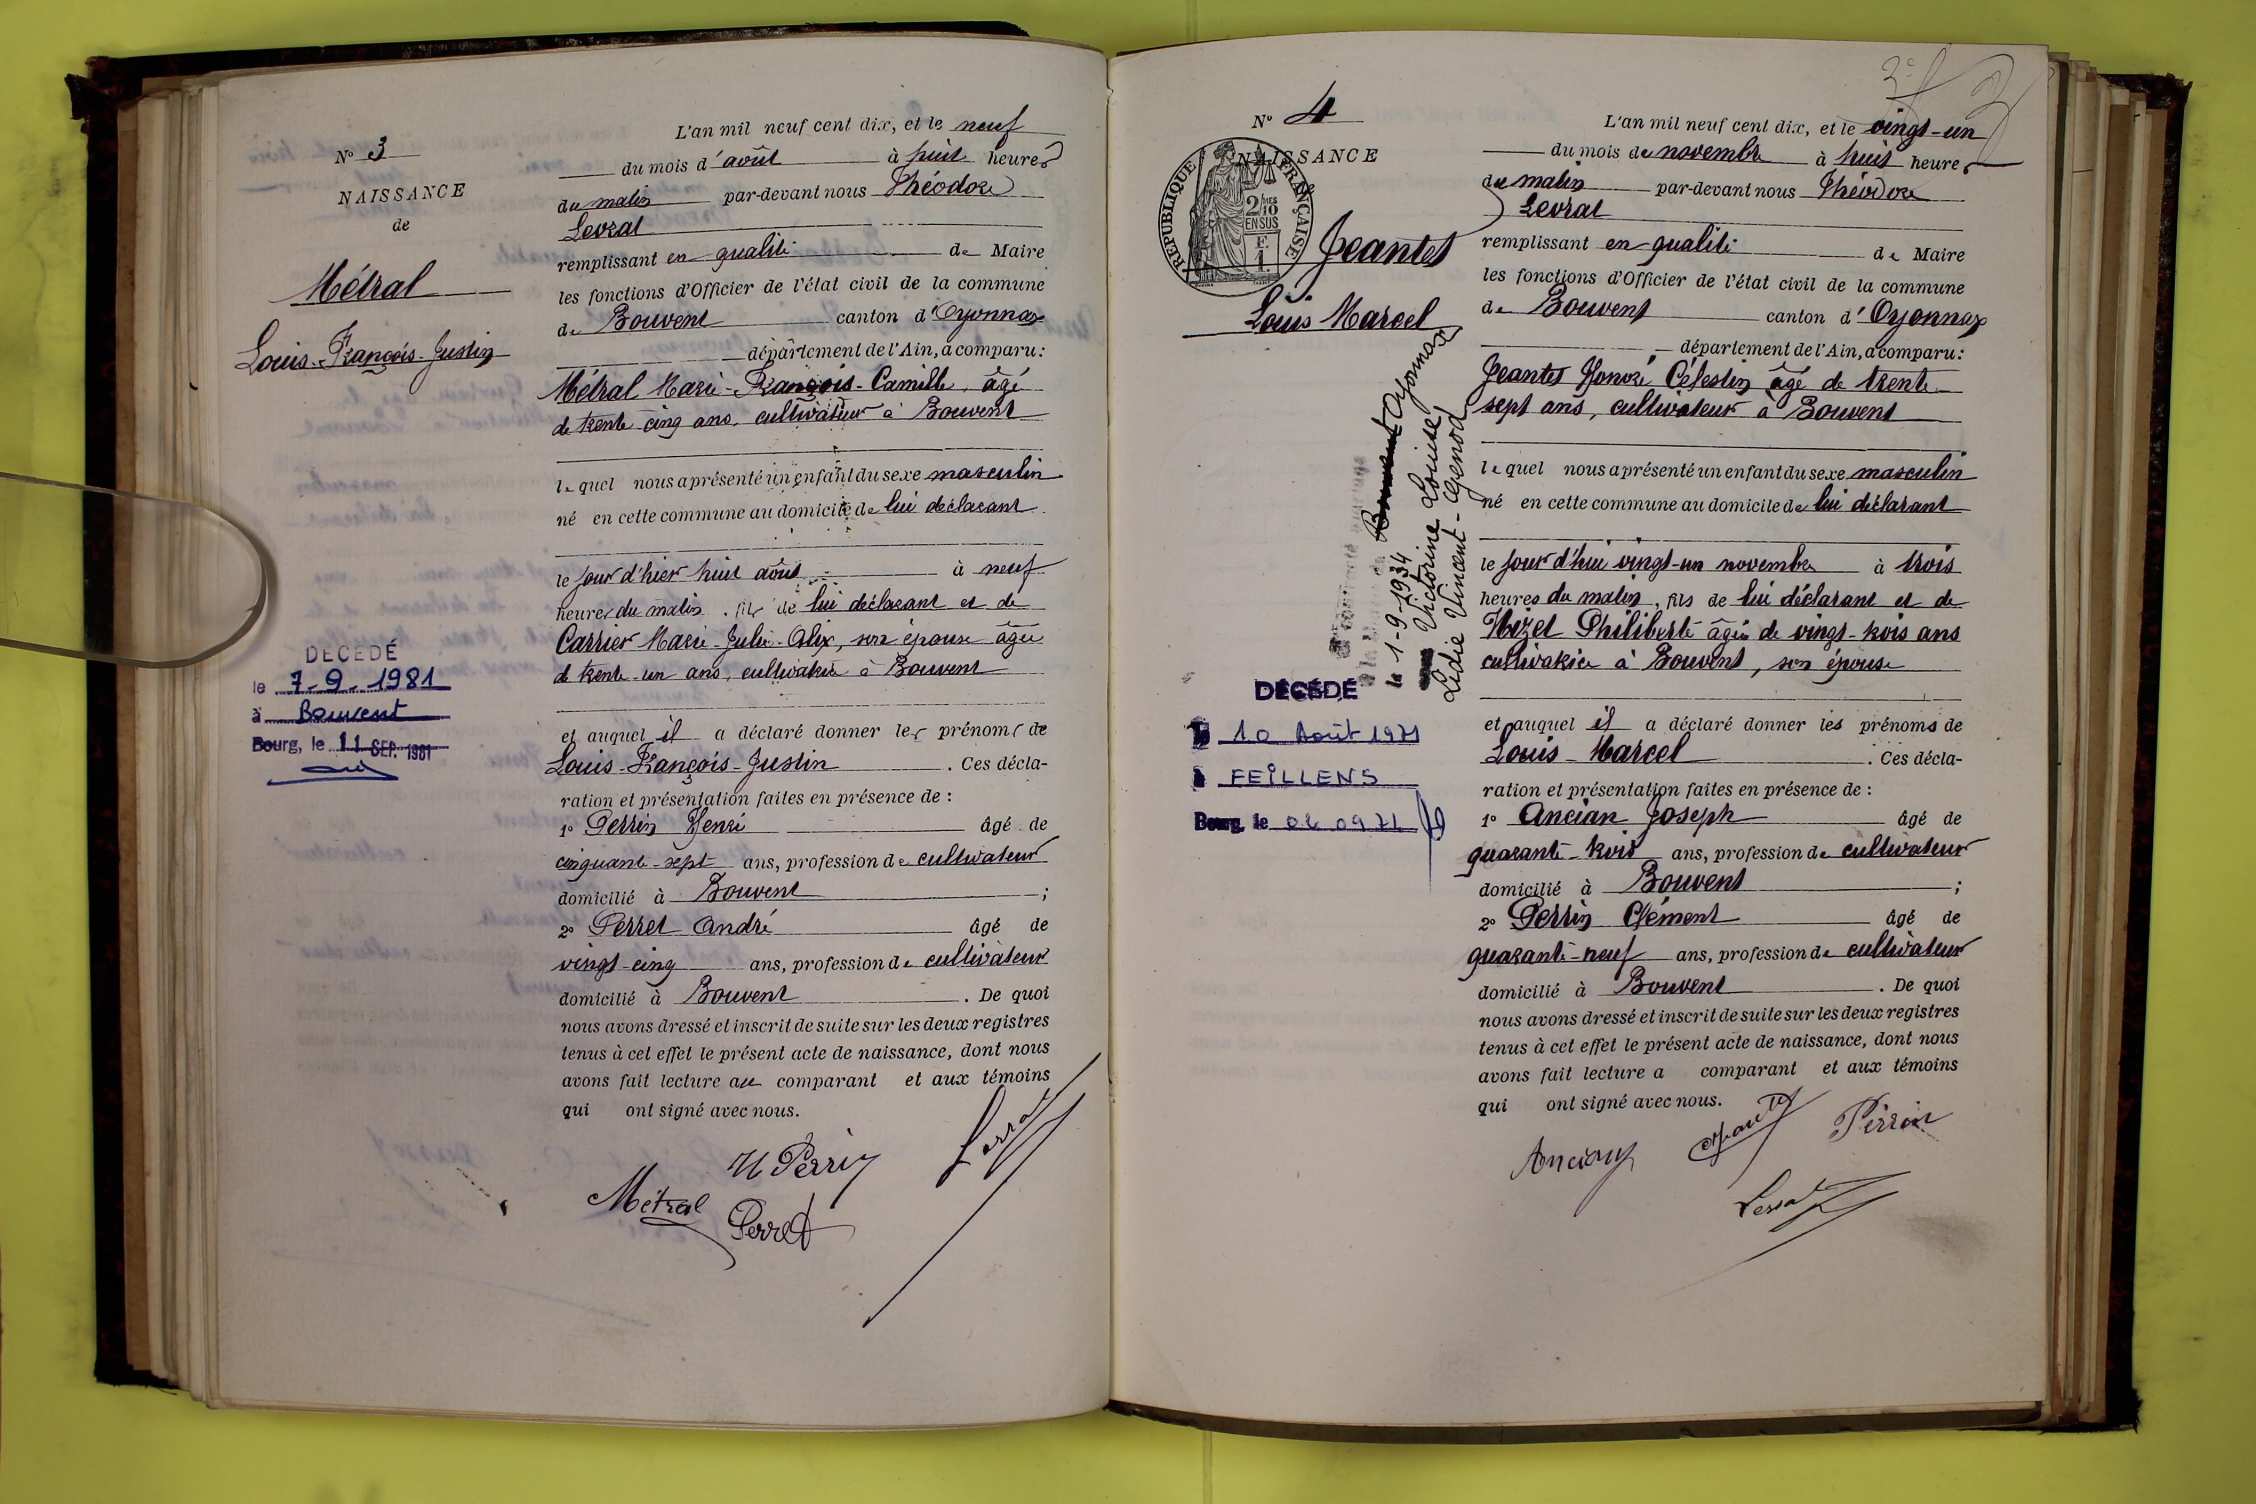 N° 3
NAISSANCE
de
Métral
Louis-François-Justin
DÉCÉDÉ
le 7-9-1981
à Bouvent
Bourg, le 11 SEP. 1981
L'an mil neuf cent dix, et le neuf
du mois d'août à huit heures
du matin par-devant nous Théodore
Levrat
remplissant en qualité de Maire
les fonctions d'Officier de l'état civil de la commune
de Bouvent canton d'Oyonnax
département de l'Ain, a comparu:
Métral Marie-François-Camille, âgé
de trente cinq ans, cultivateur à Bouvent
le quel nous a présenté un enfant du sexe masculin
né en cette commune au domicile de lui déclarant
le jour d'hier huit août à neuf
heures du matin, fils de lui déclarant et de
Carrier Marie-Julie-Alix, son épouse âgée
de trente-un ans, cultivatrice à Bouvent
et auquel il a déclaré donner les prénoms de
Louis-François-Justin. Ces décla-
ration et présentation faites en présence de:
1° Perrin Henri âgé de
cinquante-sept ans, profession de cultivateur
domicilié à Bouvent;
2° Perret André âgé de
vingt-cinq ans, profession de cultivateur
domicilié à Bouvent. De quoi
nous avons dressé et inscrit de suite sur les deux registres
tenus à cet effet le présent acte de naissance, dont nous
avons fait lecture au comparant et aux témoins
qui ont signé avec nous.
H Perrin
Levrat
Métral
Perret
N° 4
NAISSANCE
RÉPUBLIQUE FRANÇAISE
2/10 MES
EN SUS
F.
1.
Jeantet
Louis Marcel
Bouvent Oyonnax
le 1-9-1934
Victorine Louise
Lidie Vincent-Genod
DÉCÉDÉ
10 Août 1971
FEILLENS
Bourg, le 02 09 71
L'an mil neuf cent dix, et le vingt-un
du mois de novembre à huit heures
du matin par-devant nous Théodore
Levrat
remplissant en qualité de Maire
les fonctions d'Officier de l'état civil de la commune
de Bouvent canton d'Oyonnax
département de l'Ain, a comparu:
Jeantet Honoré Célestin âgé de trente-
sept ans, cultivateur à Bouvent
le quel nous a présenté un enfant du sexe masculin
né en cette commune au domicile de lui déclarant
le jour d'hui vingt-un novembre à trois
heures du matin, fils de lui déclarant et de
Mizet Philiberte âgée de vingt-trois ans
cultivatrice à Bouvent, son épouse
et auquel il a déclaré donner les prénoms de
Louis-Marcel. Ces décla-
ration et présentation faites en présence de:
1° Ancian Joseph âgé de
quarante-trois ans, profession de cultivateur
domicilié à Bouvent;
2° Perrin Clément âgé de
quarante-neuf ans, profession de cultivateur
domicilié à Bouvent. De quoi
nous avons dressé et inscrit de suite sur les deux registres
tenus à cet effet le présent acte de naissance, dont nous
avons fait lecture a comparant et aux témoins
qui ont signé avec nous.
Ancian
Jeantet
Perrin
Levrat